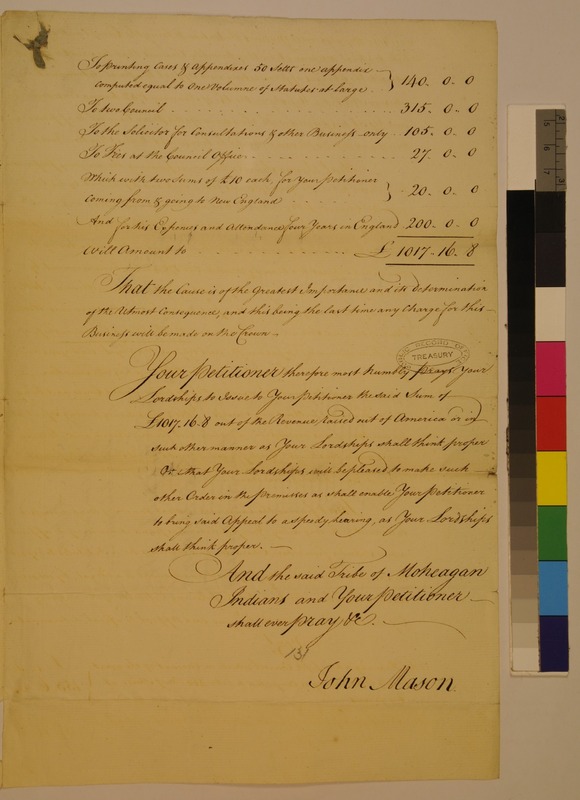 To printing Cases & Appendixes 50 Setts one appendix
computed equal to One Volumne of Statutes at Large . } 140 . 0 . 0
To two Council . . . . . . . . . . 315 . 0 . 0
To the Solicitor for Consultations & other Business only . 105 . 0 . 0
To Fees at the Council Office . . . . . . 27 . 0 . 0
Which with two Sums of £10 each, for Your Petitioner
coming from & going to New England . . . . . } 20 . 0 . 0
And for his Expences and Attendance four Years in England 200 . 0 . 0
Will Amount to . . . . . . . £ 1017 . 16 . 8
That the Cause is of the Greatest Importance and its Determination
of the Utmost Consequence, and this being the last time any Charge for this
Business will be made on the Crown
PUBLIC RECORD OFFICE
TREASURY
Your Petitioner therefore most humbly prays Your
Lordships to Issue to Your Petitioner the said Sum of
£1017. 16. 8 out of the Revenue raised out of America or in
such other manner as Your Lordships shall think proper
Or, that Your Lordships will be pleased to make such
other Order in the premisses as shall enable Your Petitioner
to bring said Appeal to a speedy hearing, as Your Lordships
shall think proper.
And the said Tribe of Moheagan
Indians and Your Petitioner
shall ever pray &c.
135
John Mason